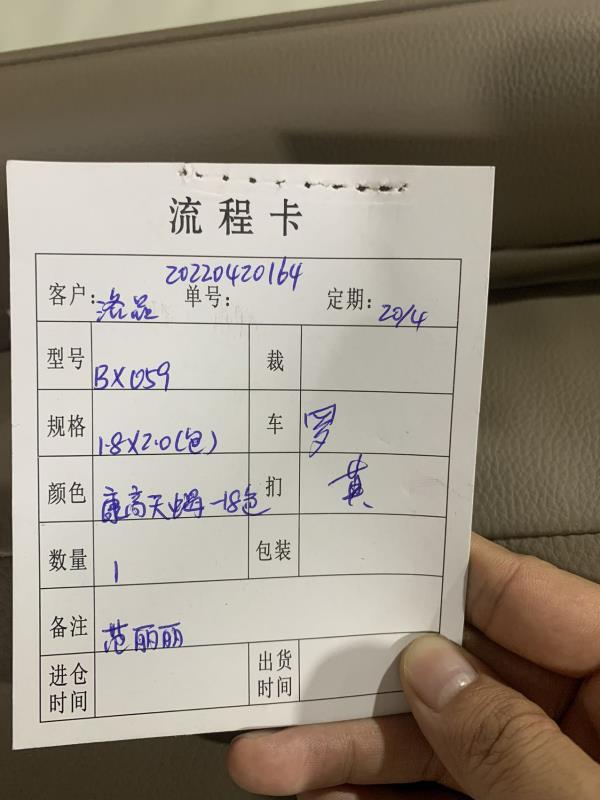 流程卡
20220420164
客户: 洛品 单号: 定期: 20/4
型号 BX059 裁
规格 1.8X2.0(包) 车 罗
颜色 康高天 -18色 扪 黄
数量 1 包装
备注 范丽丽
进仓时间 出货时间